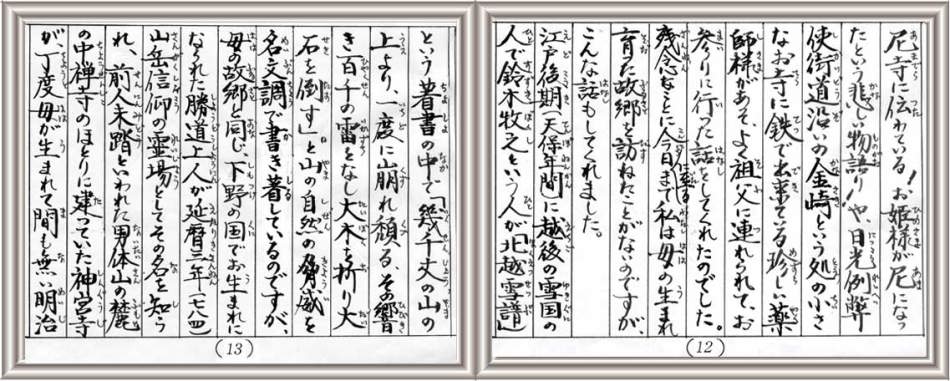 尼寺に伝わっている！お姫様が尼になっ
たという悲しい物語りや、日光例幣
使街道沿いの金崎という処の小さ
なお寺に鉄で出来てる珍しい薬
師様があそ、よく祖父に連れられて、お
参りに行った話をしてくれたのでした。
残念なことに今日まで私は母の生まれ
育った故郷を訪ねたことがないのですが
こんな話もしてくれました。
江戸後期（天保年間）に越後の雪国の
人で鈴木牧之という人が「北越雪譜」
（12）
という著書の中で「幾千丈の山の
上より、一度に崩れ頽る、その響
き百千の雷をなし大木を折り大
石を倒す」と山の自然の脅威を
名文調で書き著しているのですが、
母の故郷と同じ、下野の国でお生まれに
なられた勝道上人が延暦三年（七八四）
山岳信仰の霊場としてその名を知ら
れ、前人未踏といわれた男体山の麓
の中禅寺のほとりに建っていた神宮寺
が、丁度母が生まれて間も無い明治
（13）